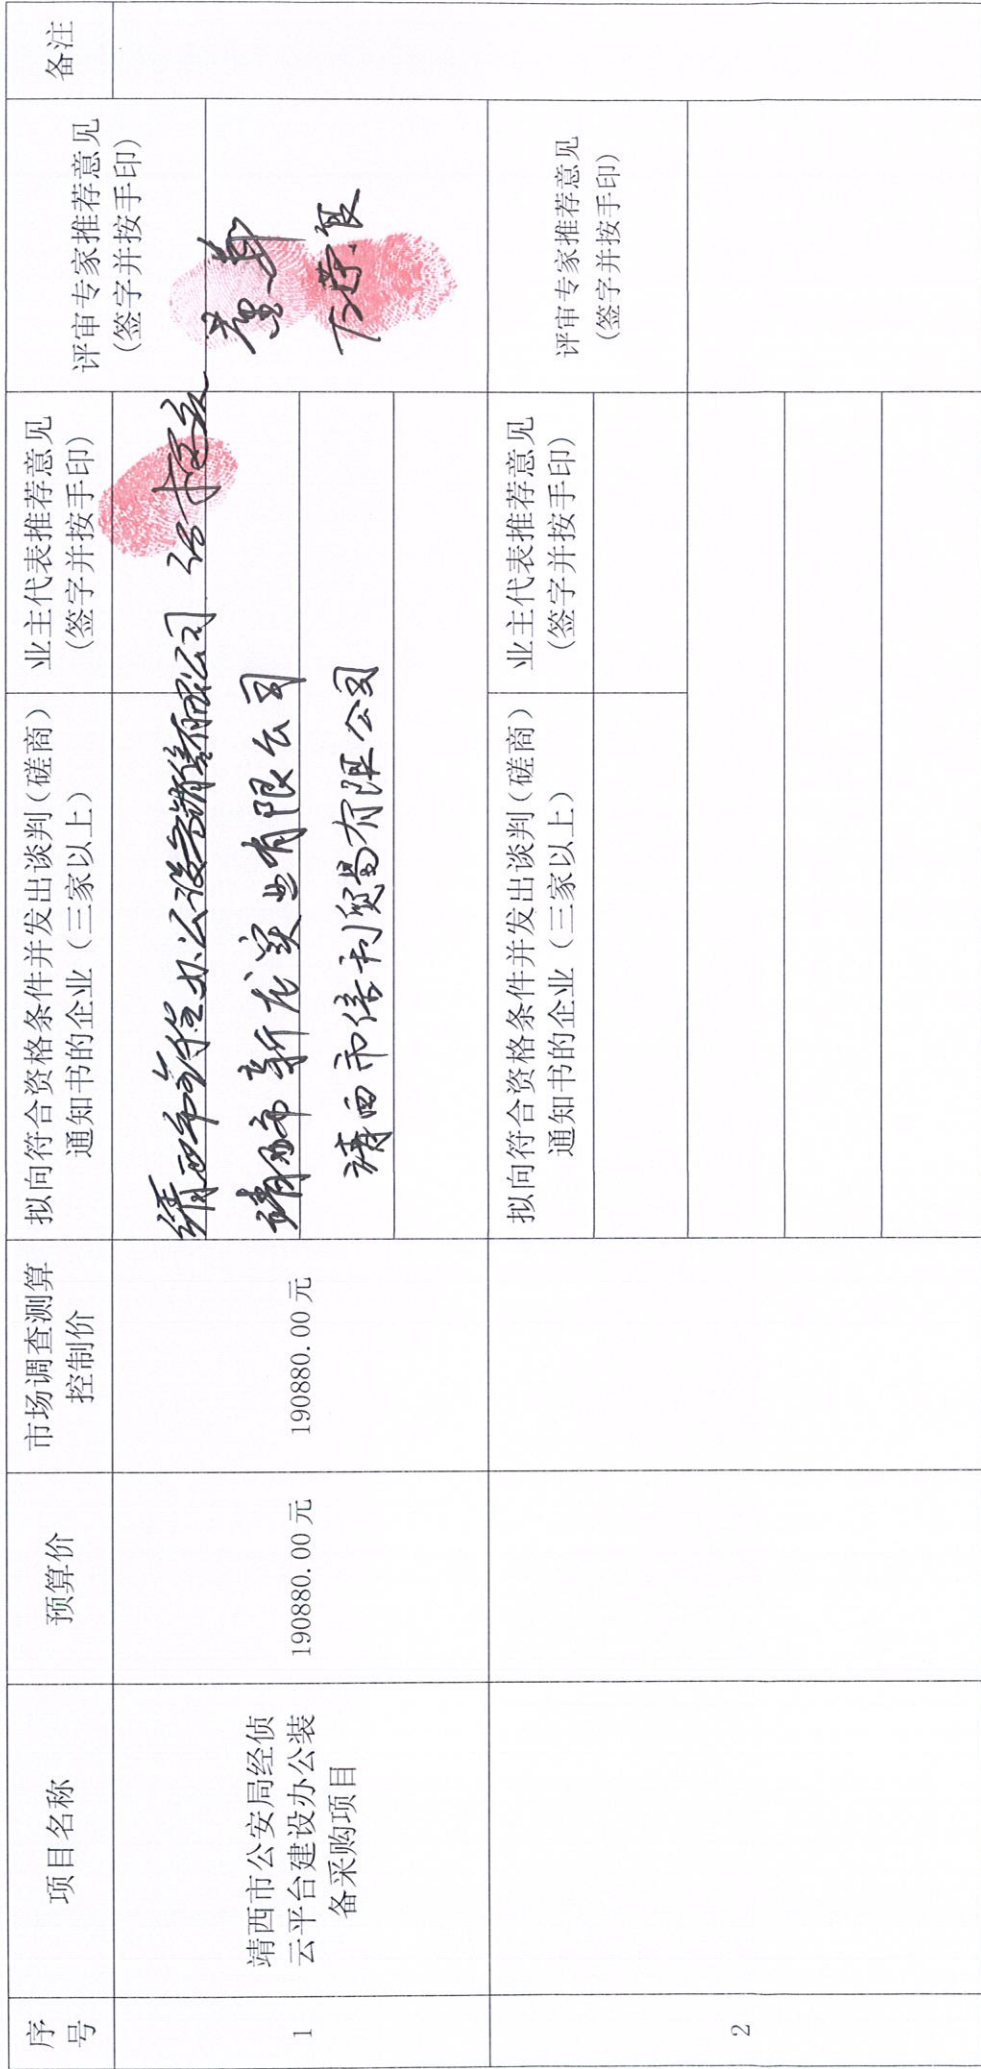 序号
项目名称
预算价
市场调查测算
控制价
拟向符合资格条件并发出谈判（磋商）
通知书的企业（三家以上）
业主代表推荐意见
（签字并按手印）
评审专家推荐意见
（签字并按手印）
备注
1
靖西市公安局经侦
云平台建设办公装
备采购项目
190880.00 元
190880.00 元
靖西市 办公设备销售有限公司
靖西市新龙实业有限公司
靖西市信利贸易有限公司
拟向符合资格条件并发出谈判（磋商）
通知书的企业（三家以上）
业主代表推荐意见
（签字并按手印）
评审专家推荐意见
（签字并按手印）
2